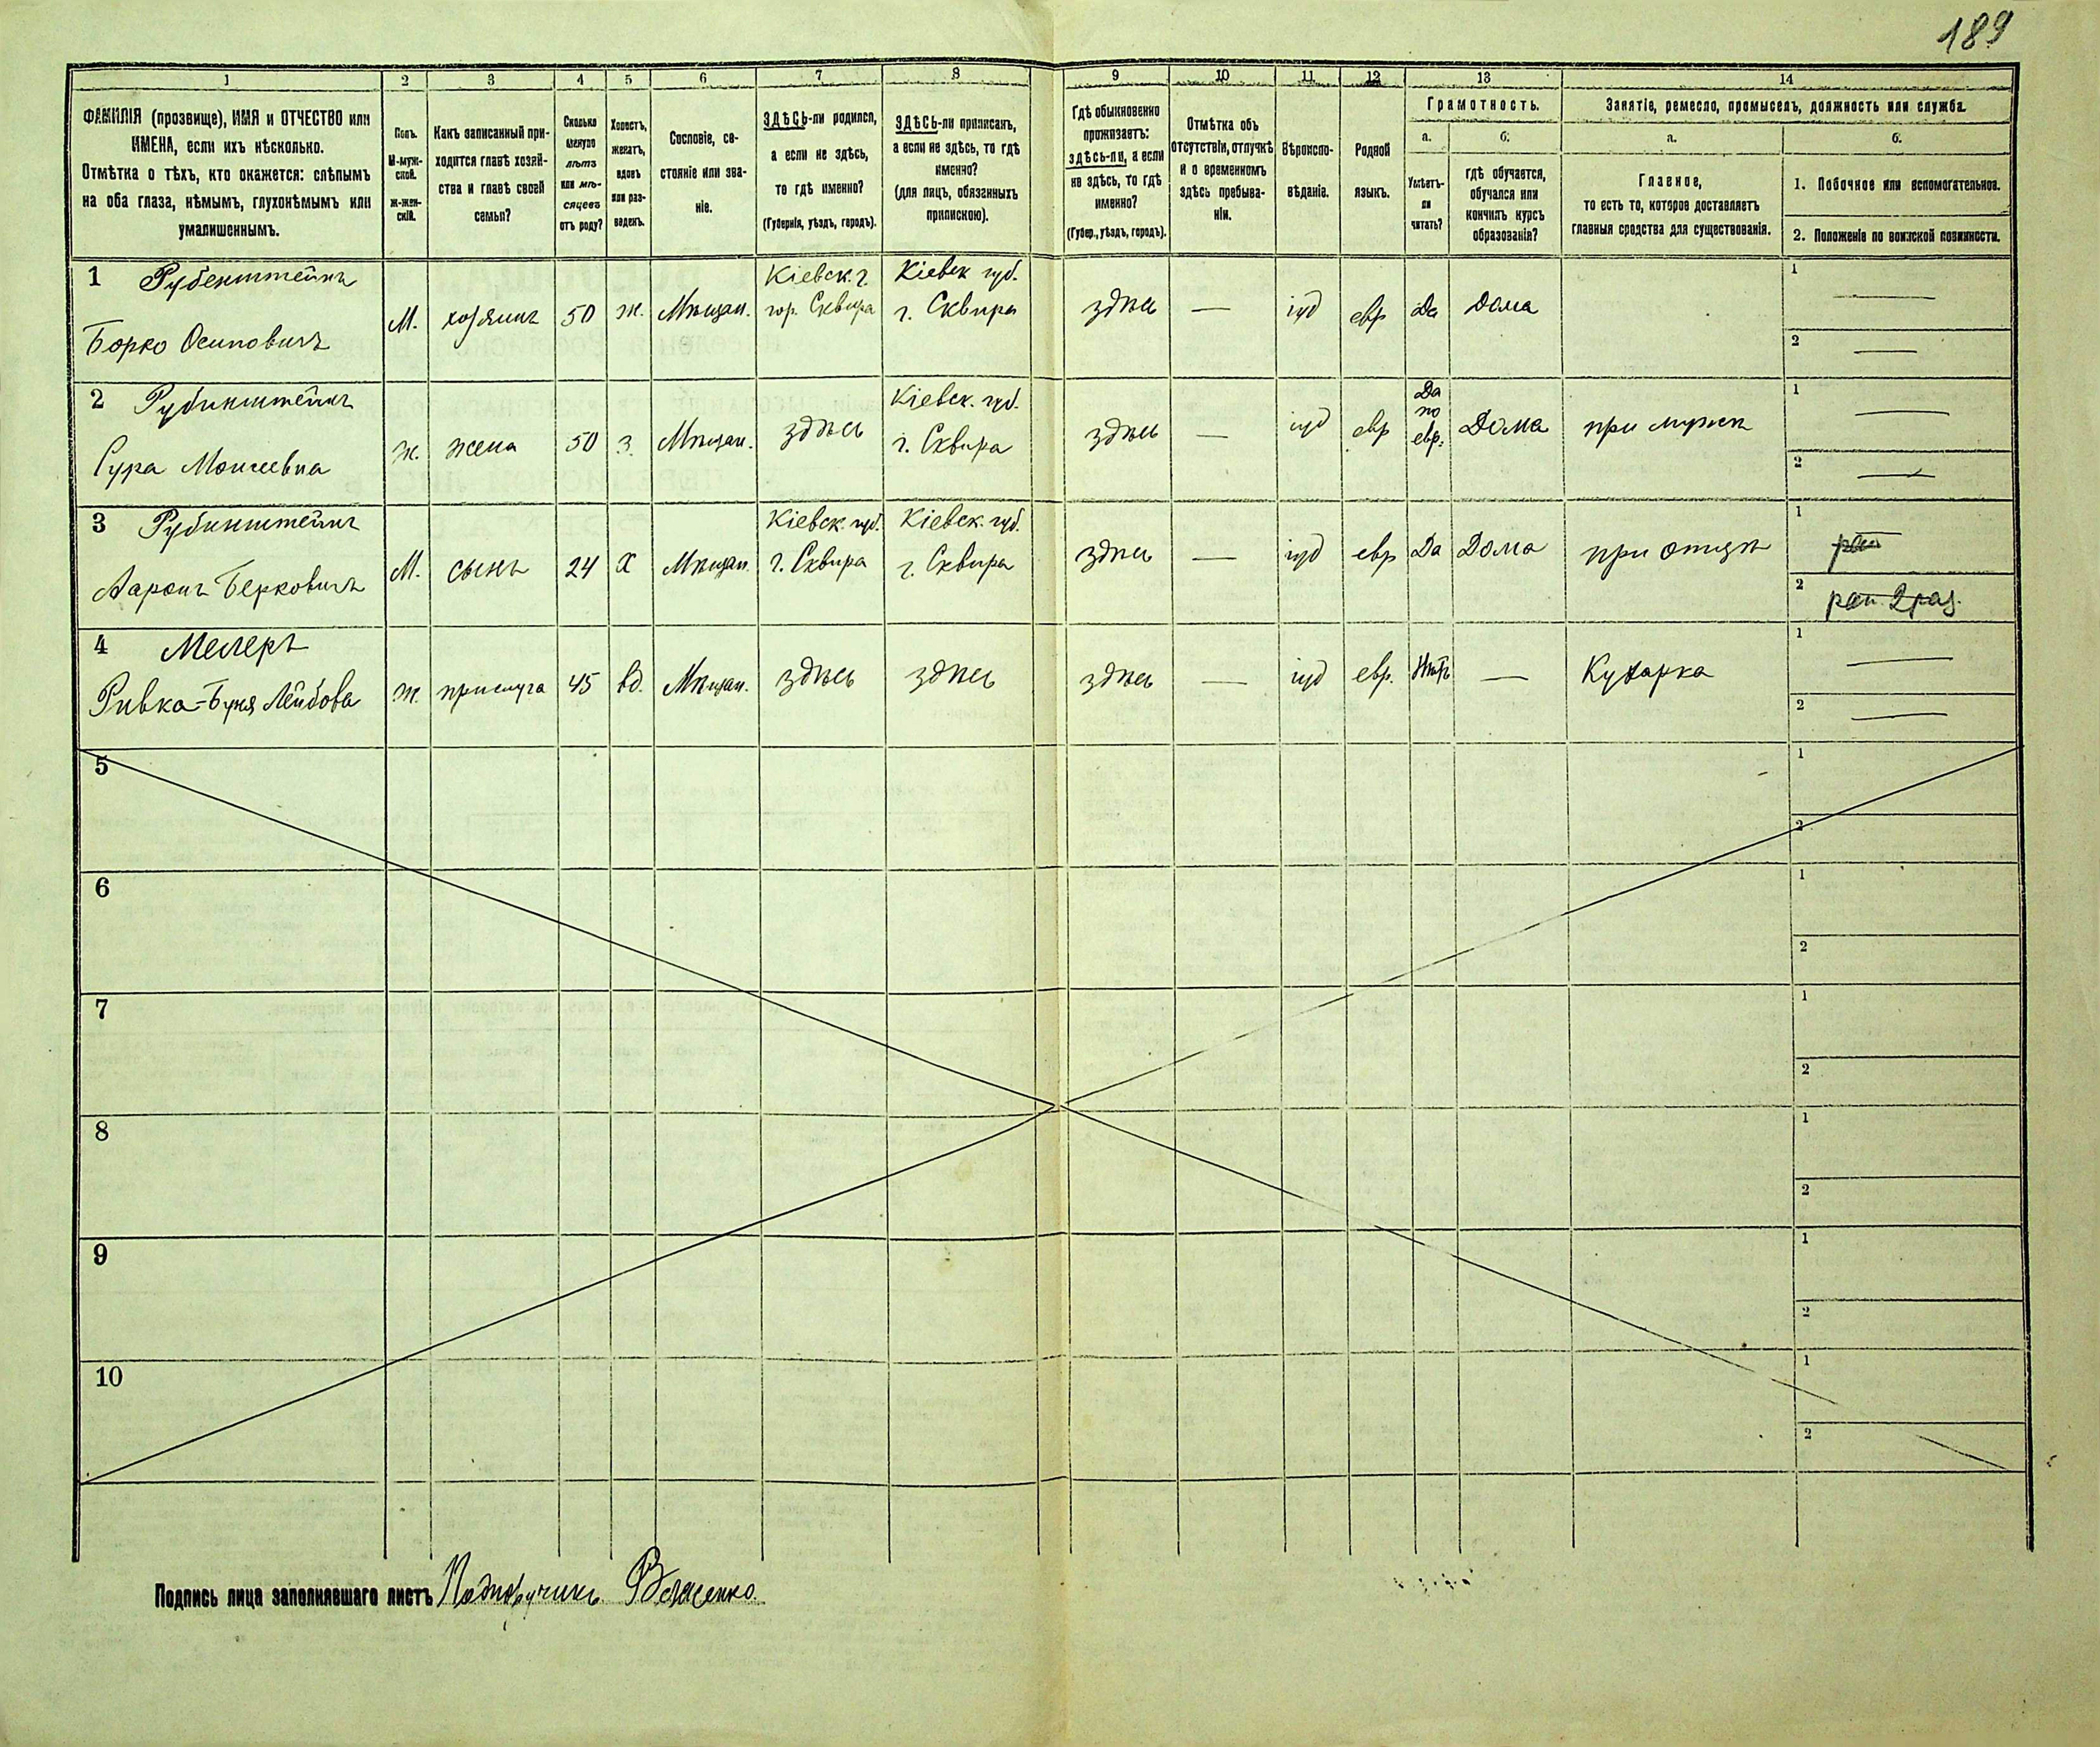 189
1 2 3 4 5 6 7 8 9 10 11 12 13 14
ФАМИЛІЯ (прозвище), ИМЯ и ОТЧЕСТВО или
ИМЕНА, если ихъ нѣсколько.
Отмѣтка о тѣхъ, кто окажется: слѣпымъ
на оба глаза, нѣмымъ, глухонѣмымъ или
умалишеннымъ.
Полъ.
М-муж-
ской.
ж-жен-
скій.
Какъ записанный при-
ходится главѣ хозяй-
ства и главѣ своей
семьи?
Сколько
минуло
лѣтъ
или мѣ-
сяцевъ
отъ роду?
Холостъ,
женатъ,
вдовъ
или раз-
веденъ.
Сословіе, со-
стояніе или зва-
ніе.
ЗДѢСЬ-ли родился,
а если не здѣсь,
то гдѣ именно?
(Губернія, уѣздъ, городъ).
ЗДѢСЬ-ли приписанъ,
а если не здѣсь, то гдѣ
именно?
(для лицъ, обязанныхъ
припискою).
Гдѣ обыкновенно
проживаетъ:
здѣсь-ли, а если
не здѣсь, то гдѣ
именно?
(Губер., уѣздъ, городъ).
Отмѣтка объ
отсутствіи, отлучкѣ
и о временномъ
здѣсь пребыва-
ніи.
Вѣроиспо-
вѣданіе.
Родной
языкъ.
Грамотность.
а.
Умѣетъ-
ли
читать?
б.
гдѣ обучается,
обучался или
кончилъ курсъ
образованія?
Занятіе, ремесло, промыселъ, должность или служба.
а.
Главное,
то есть то, которое доставляетъ
главныя средства для существованія.
б.
1. Побочное или вспомогательное.
2. Положеніе по воинской повинности.
1 Рубенштейнъ
Борко Осиповичъ
М.
хозяинъ
50
ж.
Мѣщан.
Кіевск. г.
гор. Сквира
Кіевск губ.
г. Сквира
здѣсь
—
іуд
евр
Да
Дома
1 —
2 —
2 Рубинштейнъ
Сура Моисеевна
ж.
жена
50
з.
Мѣщан.
здѣсь
Кіевск. губ.
г. Сквира
здѣсь
—
іуд
евр
Да
по
евр.
Дома
при мужѣ
1 —
2 —
3 Рубинштейнъ
Ааронъ Берковичъ
М.
сынъ
24
х
Мѣщан.
Кіевск. губ.
г. Сквира
Кіевск. губ.
г. Сквира
здѣсь
—
іуд
евр
Да
Дома
при отцѣ
1
2
4 Мелеръ
Ривка-Буня Лейбова
ж.
прислуга
45
вд.
Мѣщан.
здѣсь
здѣсь
здѣсь
—
іуд
евр.
Нѣтъ
—
Кухарка
1 —
2 —
5 1
2
6 1
2
7 1
2
8 1
2
9 1
2
10 1
2
Подпись лица заполнявшаго листъ Подпоручикъ